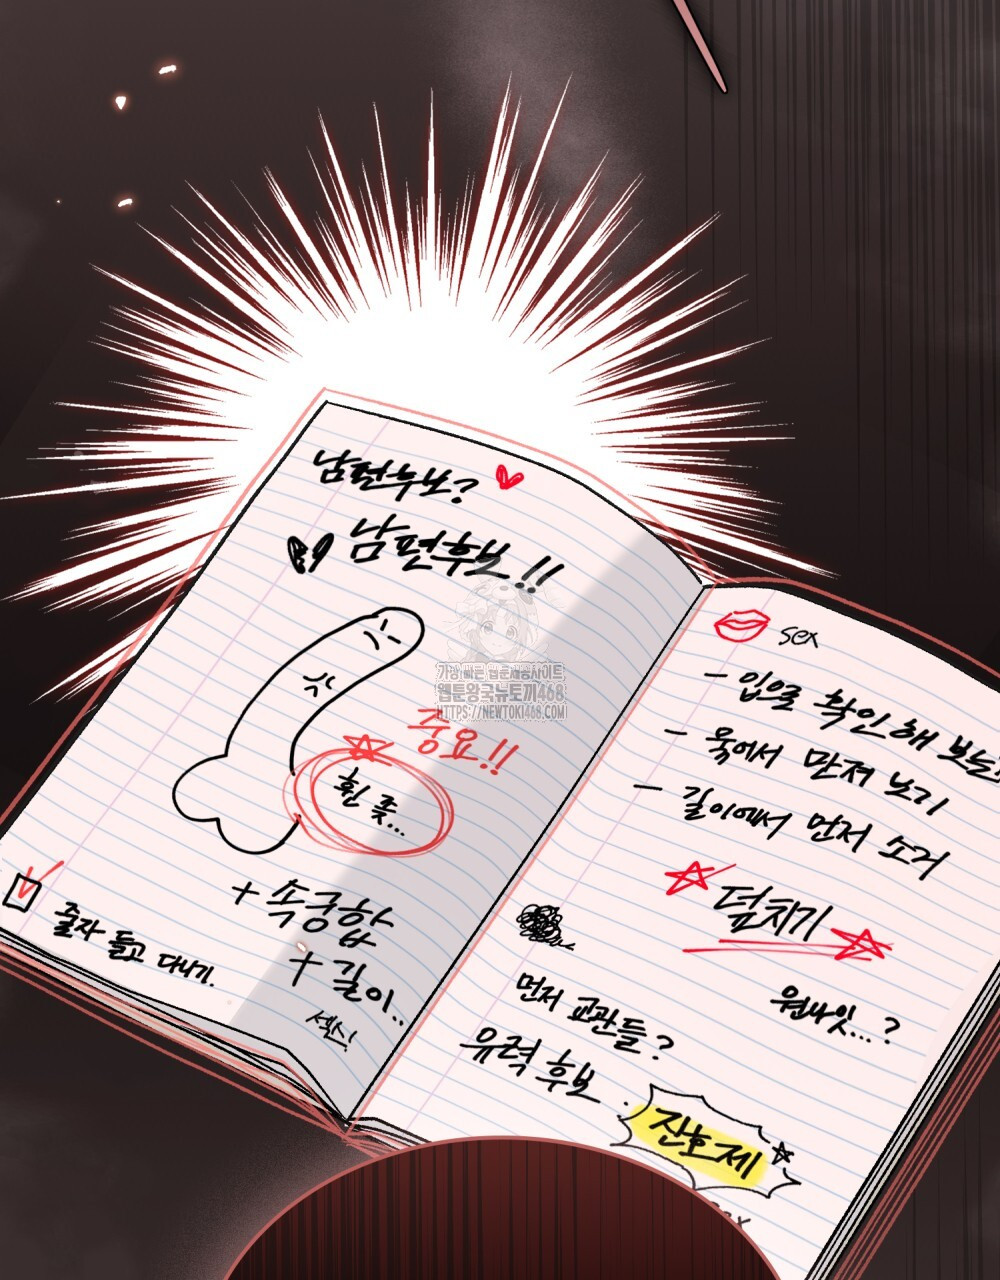 남편후보?
남편후보!!
중요!!
휜 좆...
+ 속궁합
+ 길이..
섹시!
줄자 들고 다니기.
sex
- 입으로 확인해 보는
- 목에서 만져 보기
- 길이에서 먼저 소거
덮치기
원나잇...?
먼저 교관들?
유력 후보.
잔호제
sex
가장 빠른 웹툰제공사이트
웹툰왕국뉴토끼468
HTTPS://NEWTOKI468.COM